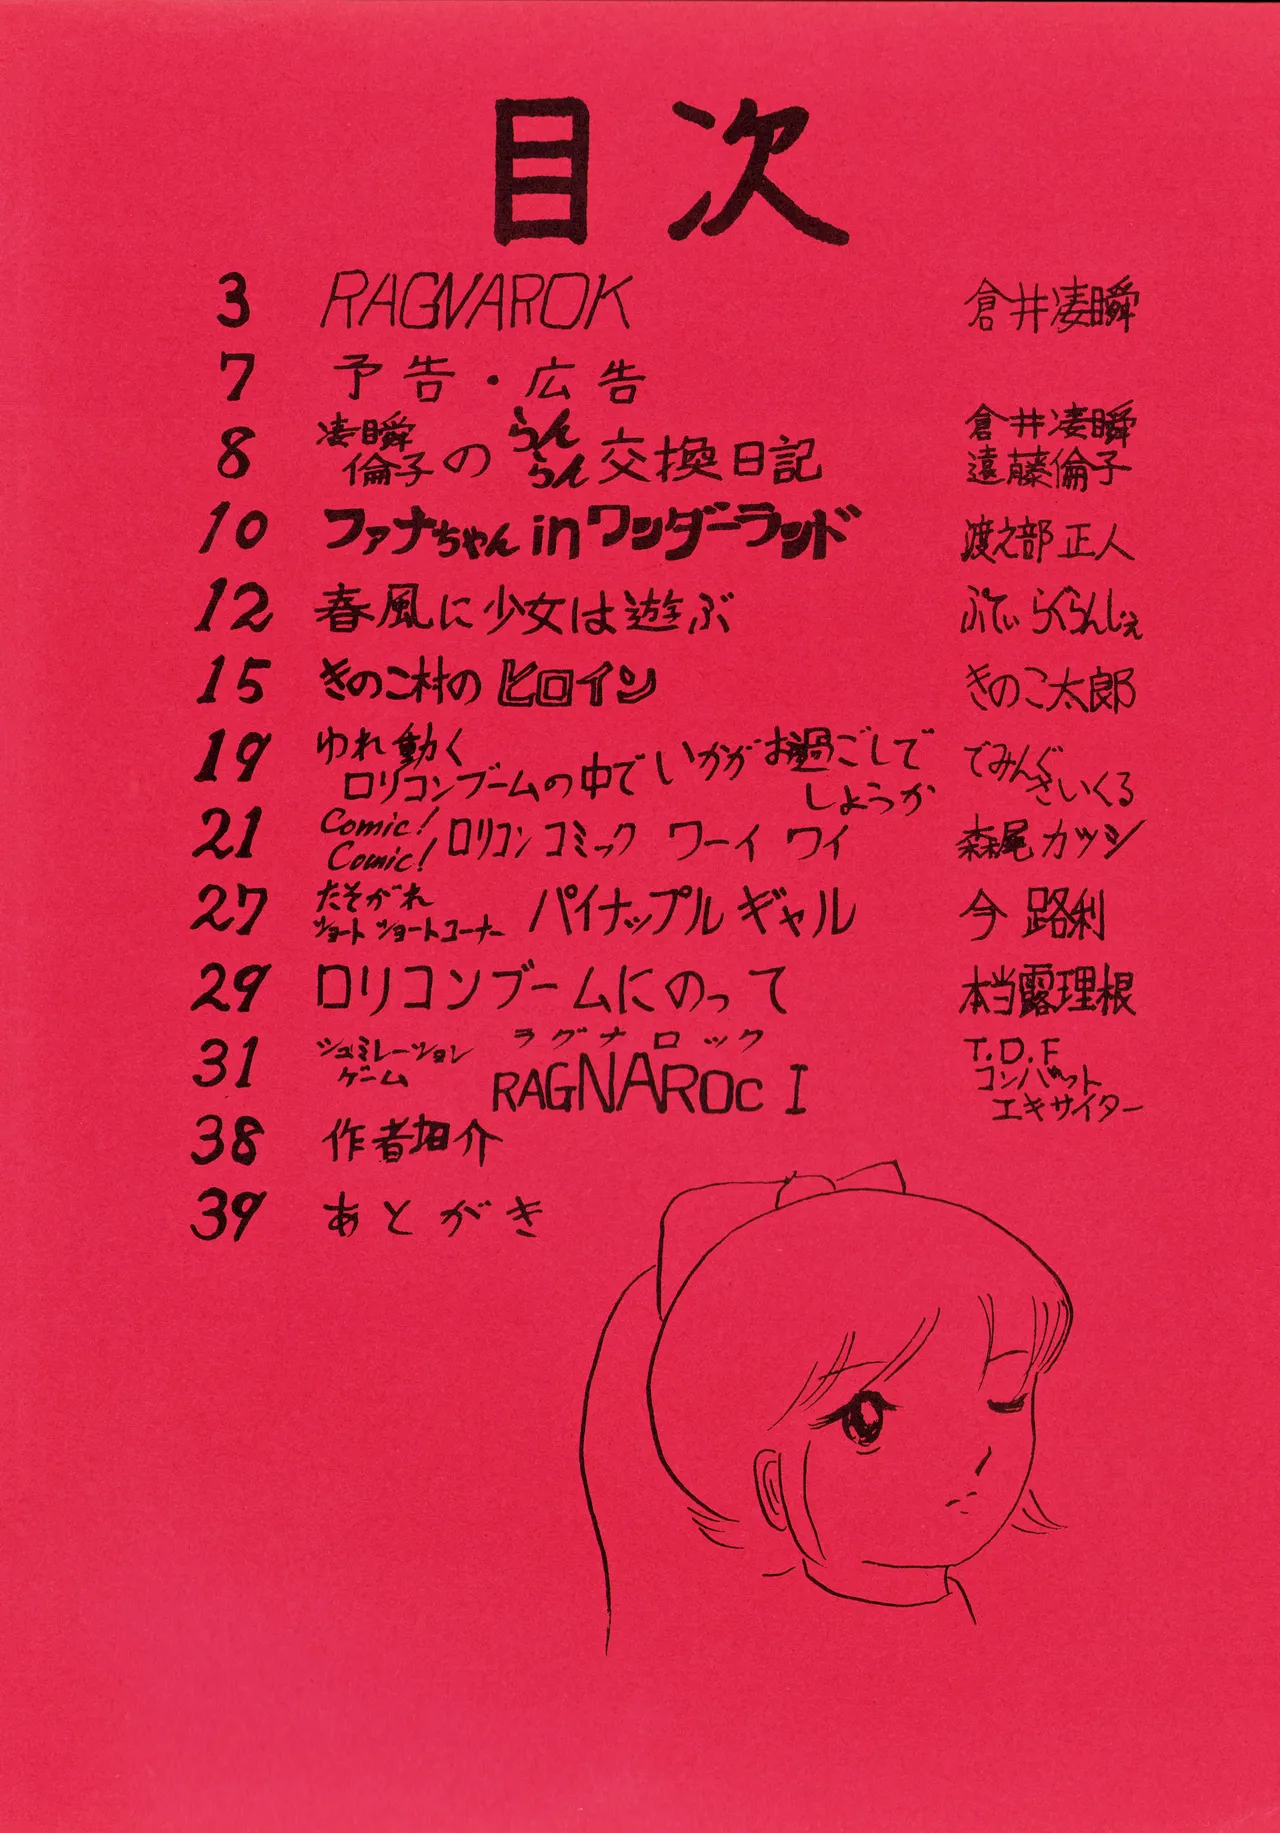 目次
3 RAGNAROK 倉井凄瞬
7 予告・広告
8 凄瞬 倫子のらんらん交換日記 倉井凄瞬 遠藤倫子
10 ファナちゃん in ワンダーランド 渡之部 正人
12 春風に少女は遊ぶ ぷてぃ らぐらんじぇ
15 きのこ村のヒロイン きのこ太郎
19 ゆれ動く でみんぐ
ロリコンブームの中でいかがお過ごしで さいくる
しょうか
21 Comic! Comic! ロリコンコミック ワーイ ワイ 森尾カツシ
27 たそがれ ショートショートコーナー パイナップル ギャル 今 路利
29 ロリコンブームにのって 本当露理根
31 シュミレーションゲーム ラグナロック T.D.F
RAGNAROC I コンバット
エキサイター
38 作者紹介
39 あとがき